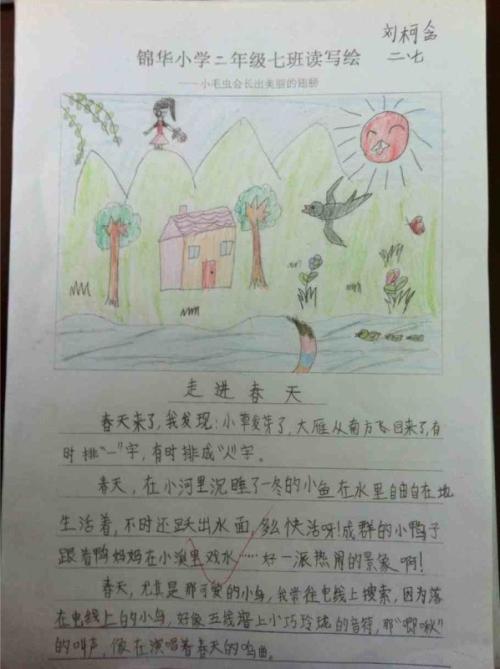 刘柯含
二、七
锦华小学二年级七班读写绘
——小毛虫会长出美丽的翅膀
走进春天
春天来了,我发现:小草发芽了,大雁从南方飞回来了,有
时排"一"字,有时排成"人"字。
春天,在小河里沉睡了一冬的小鱼在水里自由自在地
生活着,不时还跃出水面,多么快活呀!成群的小鸭子
跟着鸭妈妈在小溪里戏水……好一派热闹的景象啊!
春天,尤其是那可爱的小鸟,我常往电线上搜索,因为落
在电线上的小鸟,好像五线谱上小巧玲珑的音符,那"啾啾"
的叫声,像在演唱着春天的鸣曲。